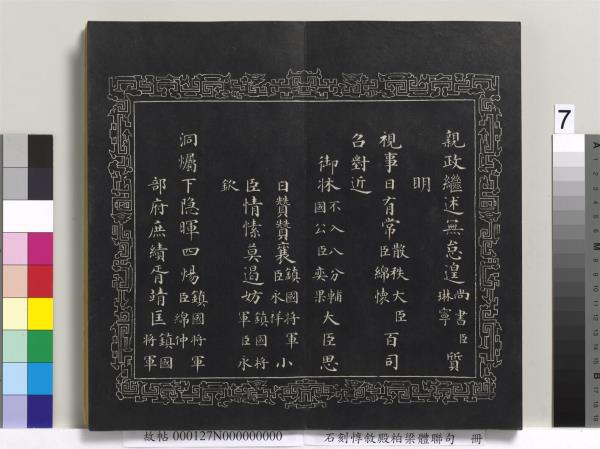 親政繼述無怠遑尚書臣琳寧質
明
視事日有常散秩大臣臣綿懷百司
召對近
御牀不入八分輔國公臣奕果大臣思
日贊贊襄鎮國將軍臣永祥小
臣情愫莫遏妨鎮國將軍臣永
欽
洞燭下隱暉四煬鎮國將軍臣綿仲
部府庶績胥靖匡鎮國將軍
7
故帖 000127N000000000
石刻惇敘殿柏梁體聯句 冊